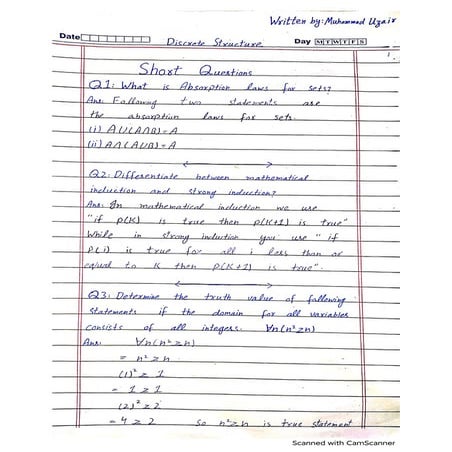 Written by: Muhammad Uzair
Date
Discrete Structure
Day M T W T F S
1
Short Questions
Q1: What is Absorption laws for sets?
Ans: Following two statements are
the absorption laws for sets.
(i) A∪(A∩B)=A
(ii) A∩(A∪B)=A
Q2: Differentiate between mathematical
induction and strong induction?
Ans: In mathematical induction we use
"if P(K) is true then P(K+1) is true"
While in strong induction you use "if
P(i) is true for all i less than or
equal to K then P(K+1) is true".
Q3: Determine the truth value of following
statements if the domain for all variables
consists of all integers. ∀n(n²≥n)
Ans: ∀n(n²≥n)
= n²≥n
(1)² ≥ 1
= 1 ≥ 1
(2)² ≥ 2
= 4 ≥ 2 so n²≥n is true statement
Scanned with CamScanner